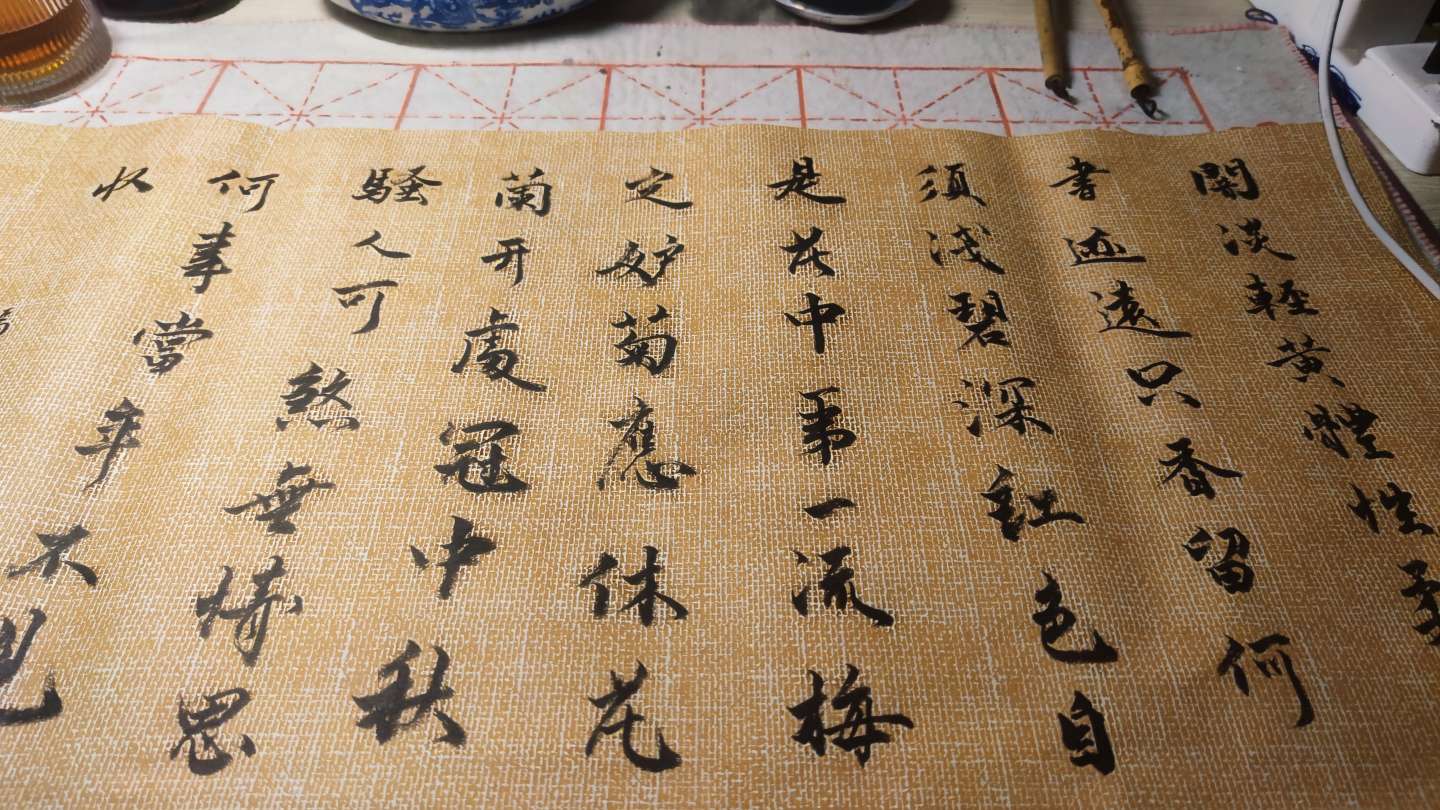 閑淡輕黃體性柔
書迹遠只香留何
須淺碧深紅色自
是花中第一流梅
定妒菊應休花
蘭开處冠中秋
騷人可煞無情思
何事當年不見
收